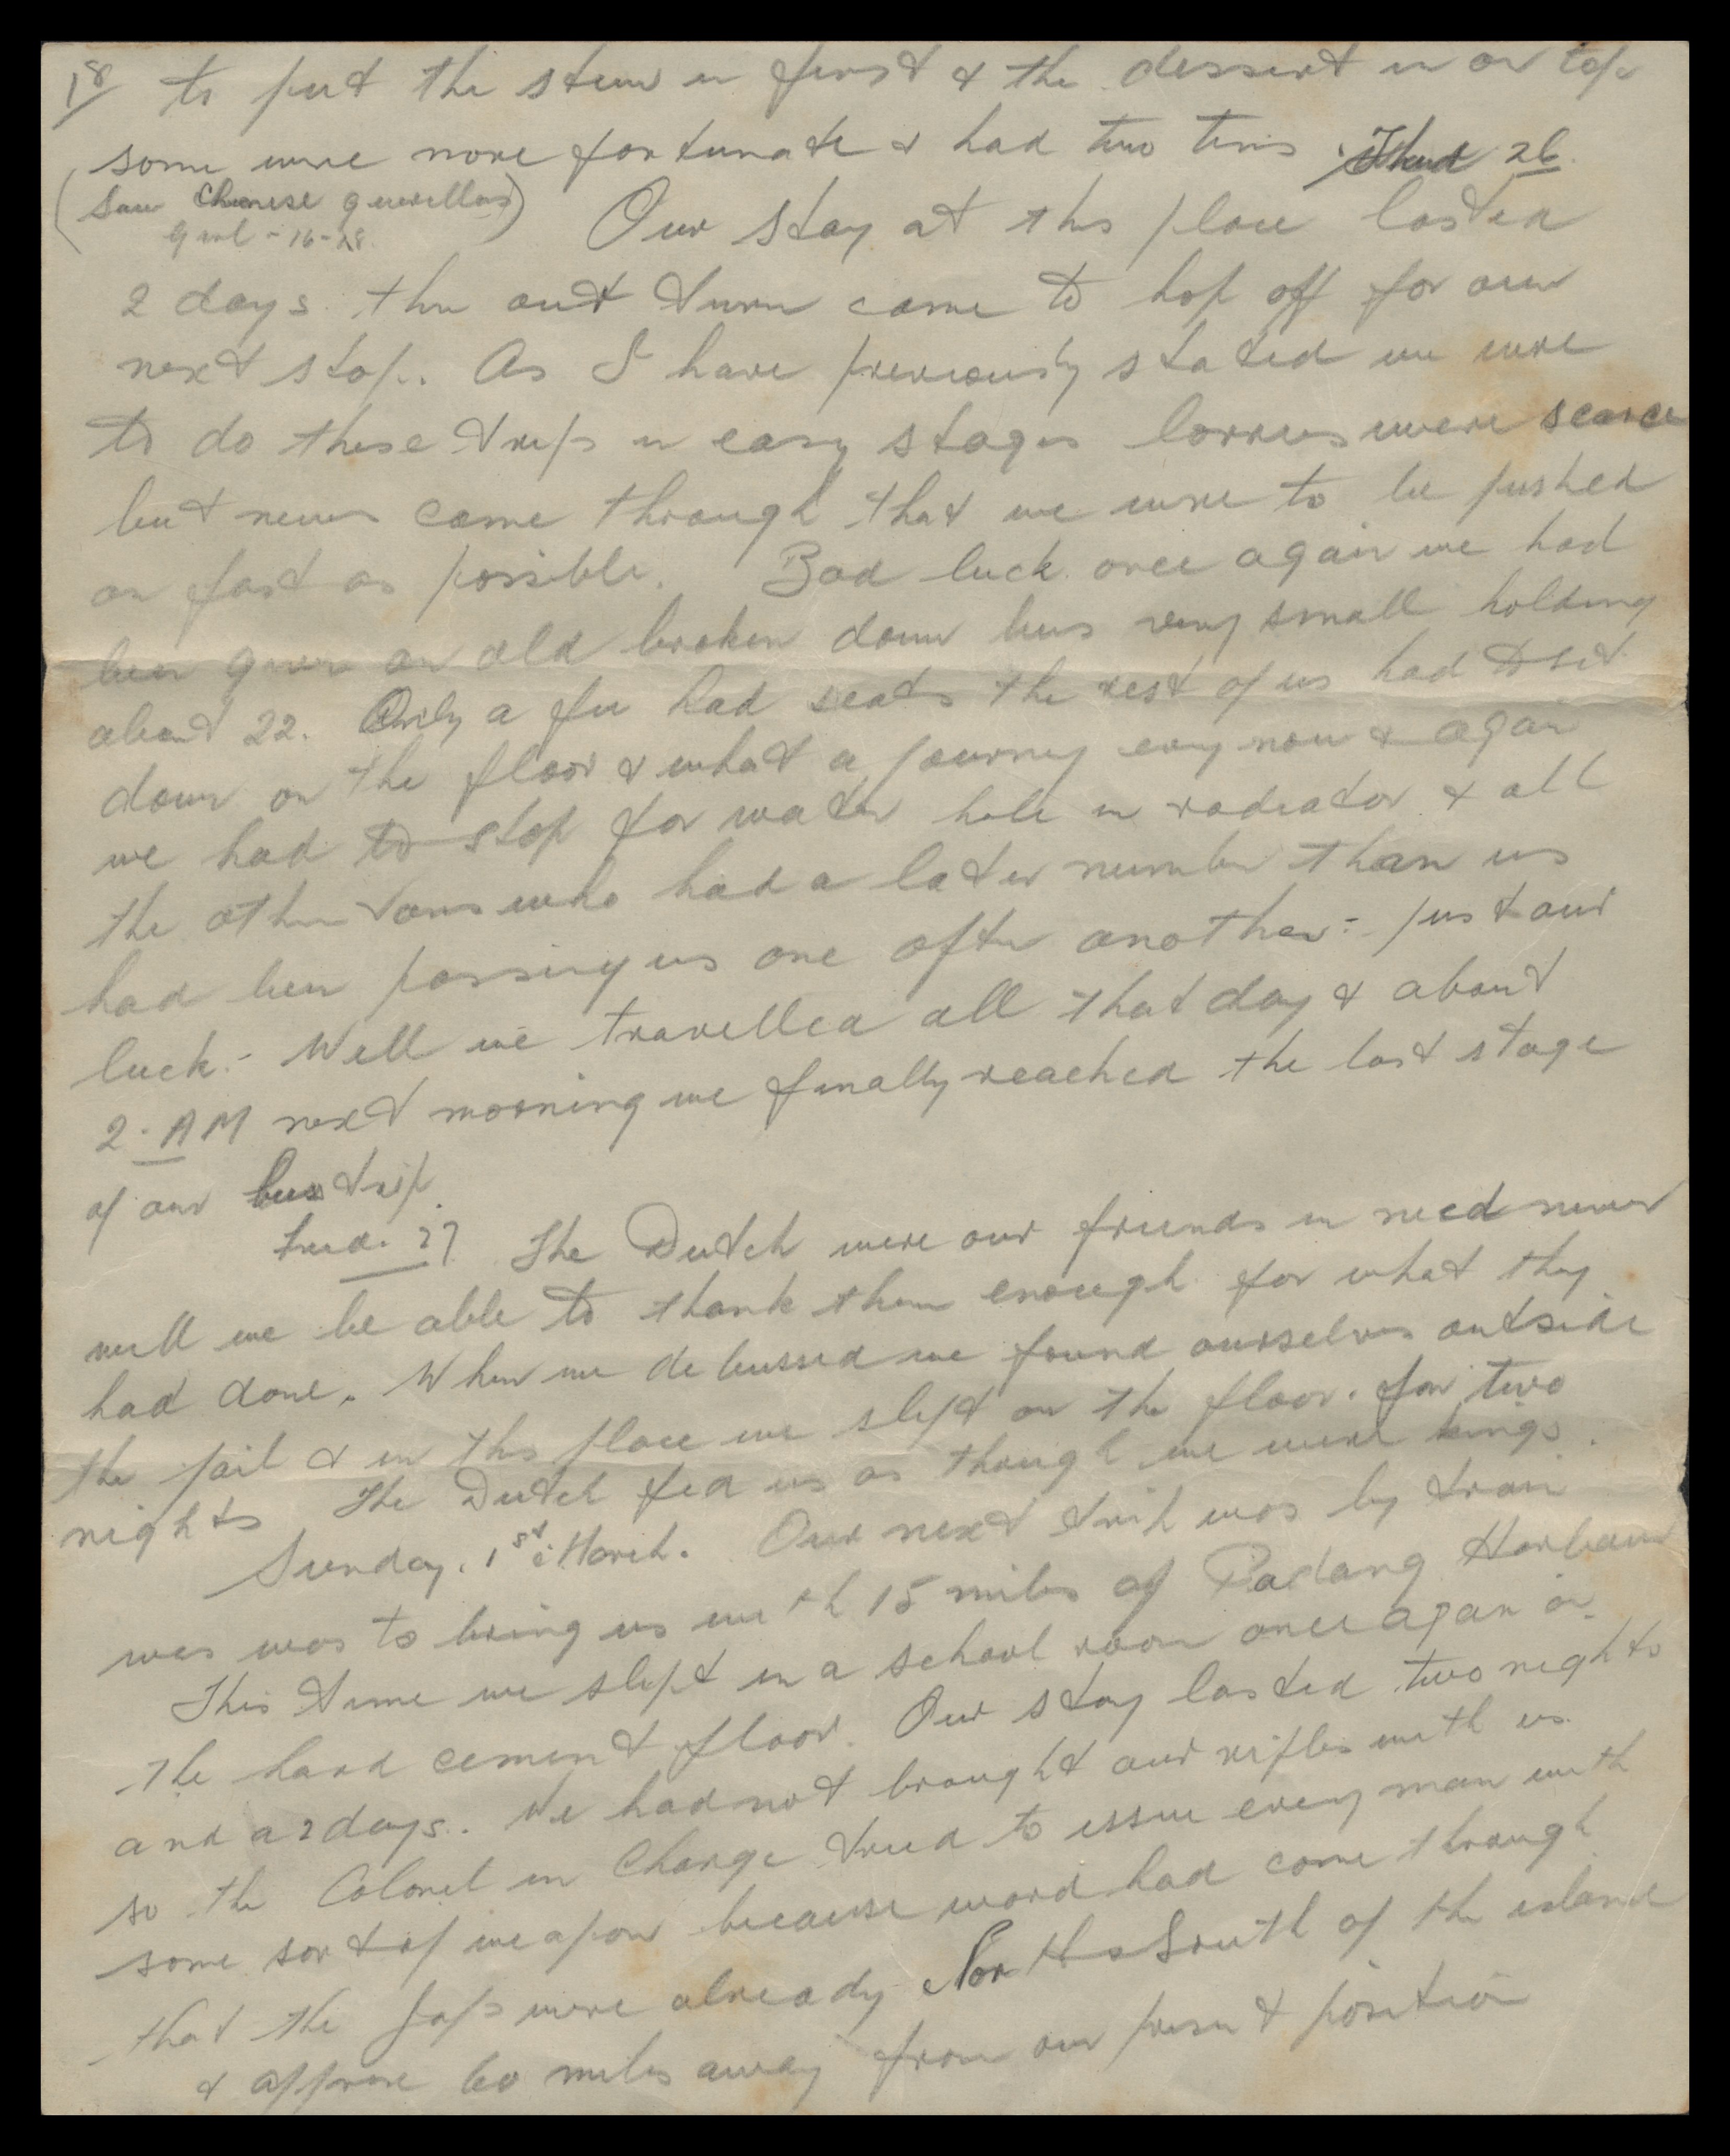 18/ to put the stew in first & the dessert in on top
some were more fortunate & had two tins. Thud 26.
(Saw Chinese guerillas)
girl - 16-18
Our stay at this place lasted
2 days. then out turn came to hop off for our
next stop. As I have previously stated we were
to do these trips in easy stages lorries were scarce
but news came through that we were to be pushed
on fast as possible. Bad luck once again we had
been given an old broken down bus very small holding
about 22. Only a few had seats the rest of us had to sit
down on the floor & what a journey every now & again
we had to stop for water hole in radiator & all
the other vans who had a later number than us
had been passing us one after another - just our
luck - Well we travelled all that day & about
2. AM next morning we finally reached the last stage
of our bus trip.
Frid. 27 The Dutch were our friends in need never
will we be able to thank them enough for what they
had done. When we debussed we found ourselves outside
the jail & in this place we slept on the floor. for two
nights The Dutch fed us as though we were kings.
Sunday. 1st March. Our next trip was by train
was was to bring us with 15 miles of Padang Harbour
This time we slept in a school room once again on
the hard cement floor. Our stay lasted two nights
and a 2 days. We had not brought our rifles with us.
so the Colonel in Charge tried to issue every man with
some sort of weapon because word had come through
that the Japs were already North & South of the island
& approx 60 miles away from our present position